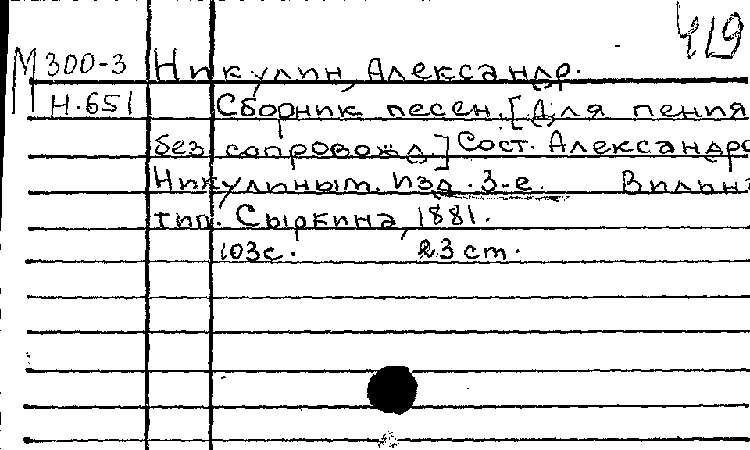 419
М 300-3 Никулин, Александр.
Н.651 Сборник песен. [Для пения
без сопровожд.] Сост. Александро
Никулиным. Изд. 3-е. Вильна
тип. Сыркина, 1881.
103с. 23 ст.